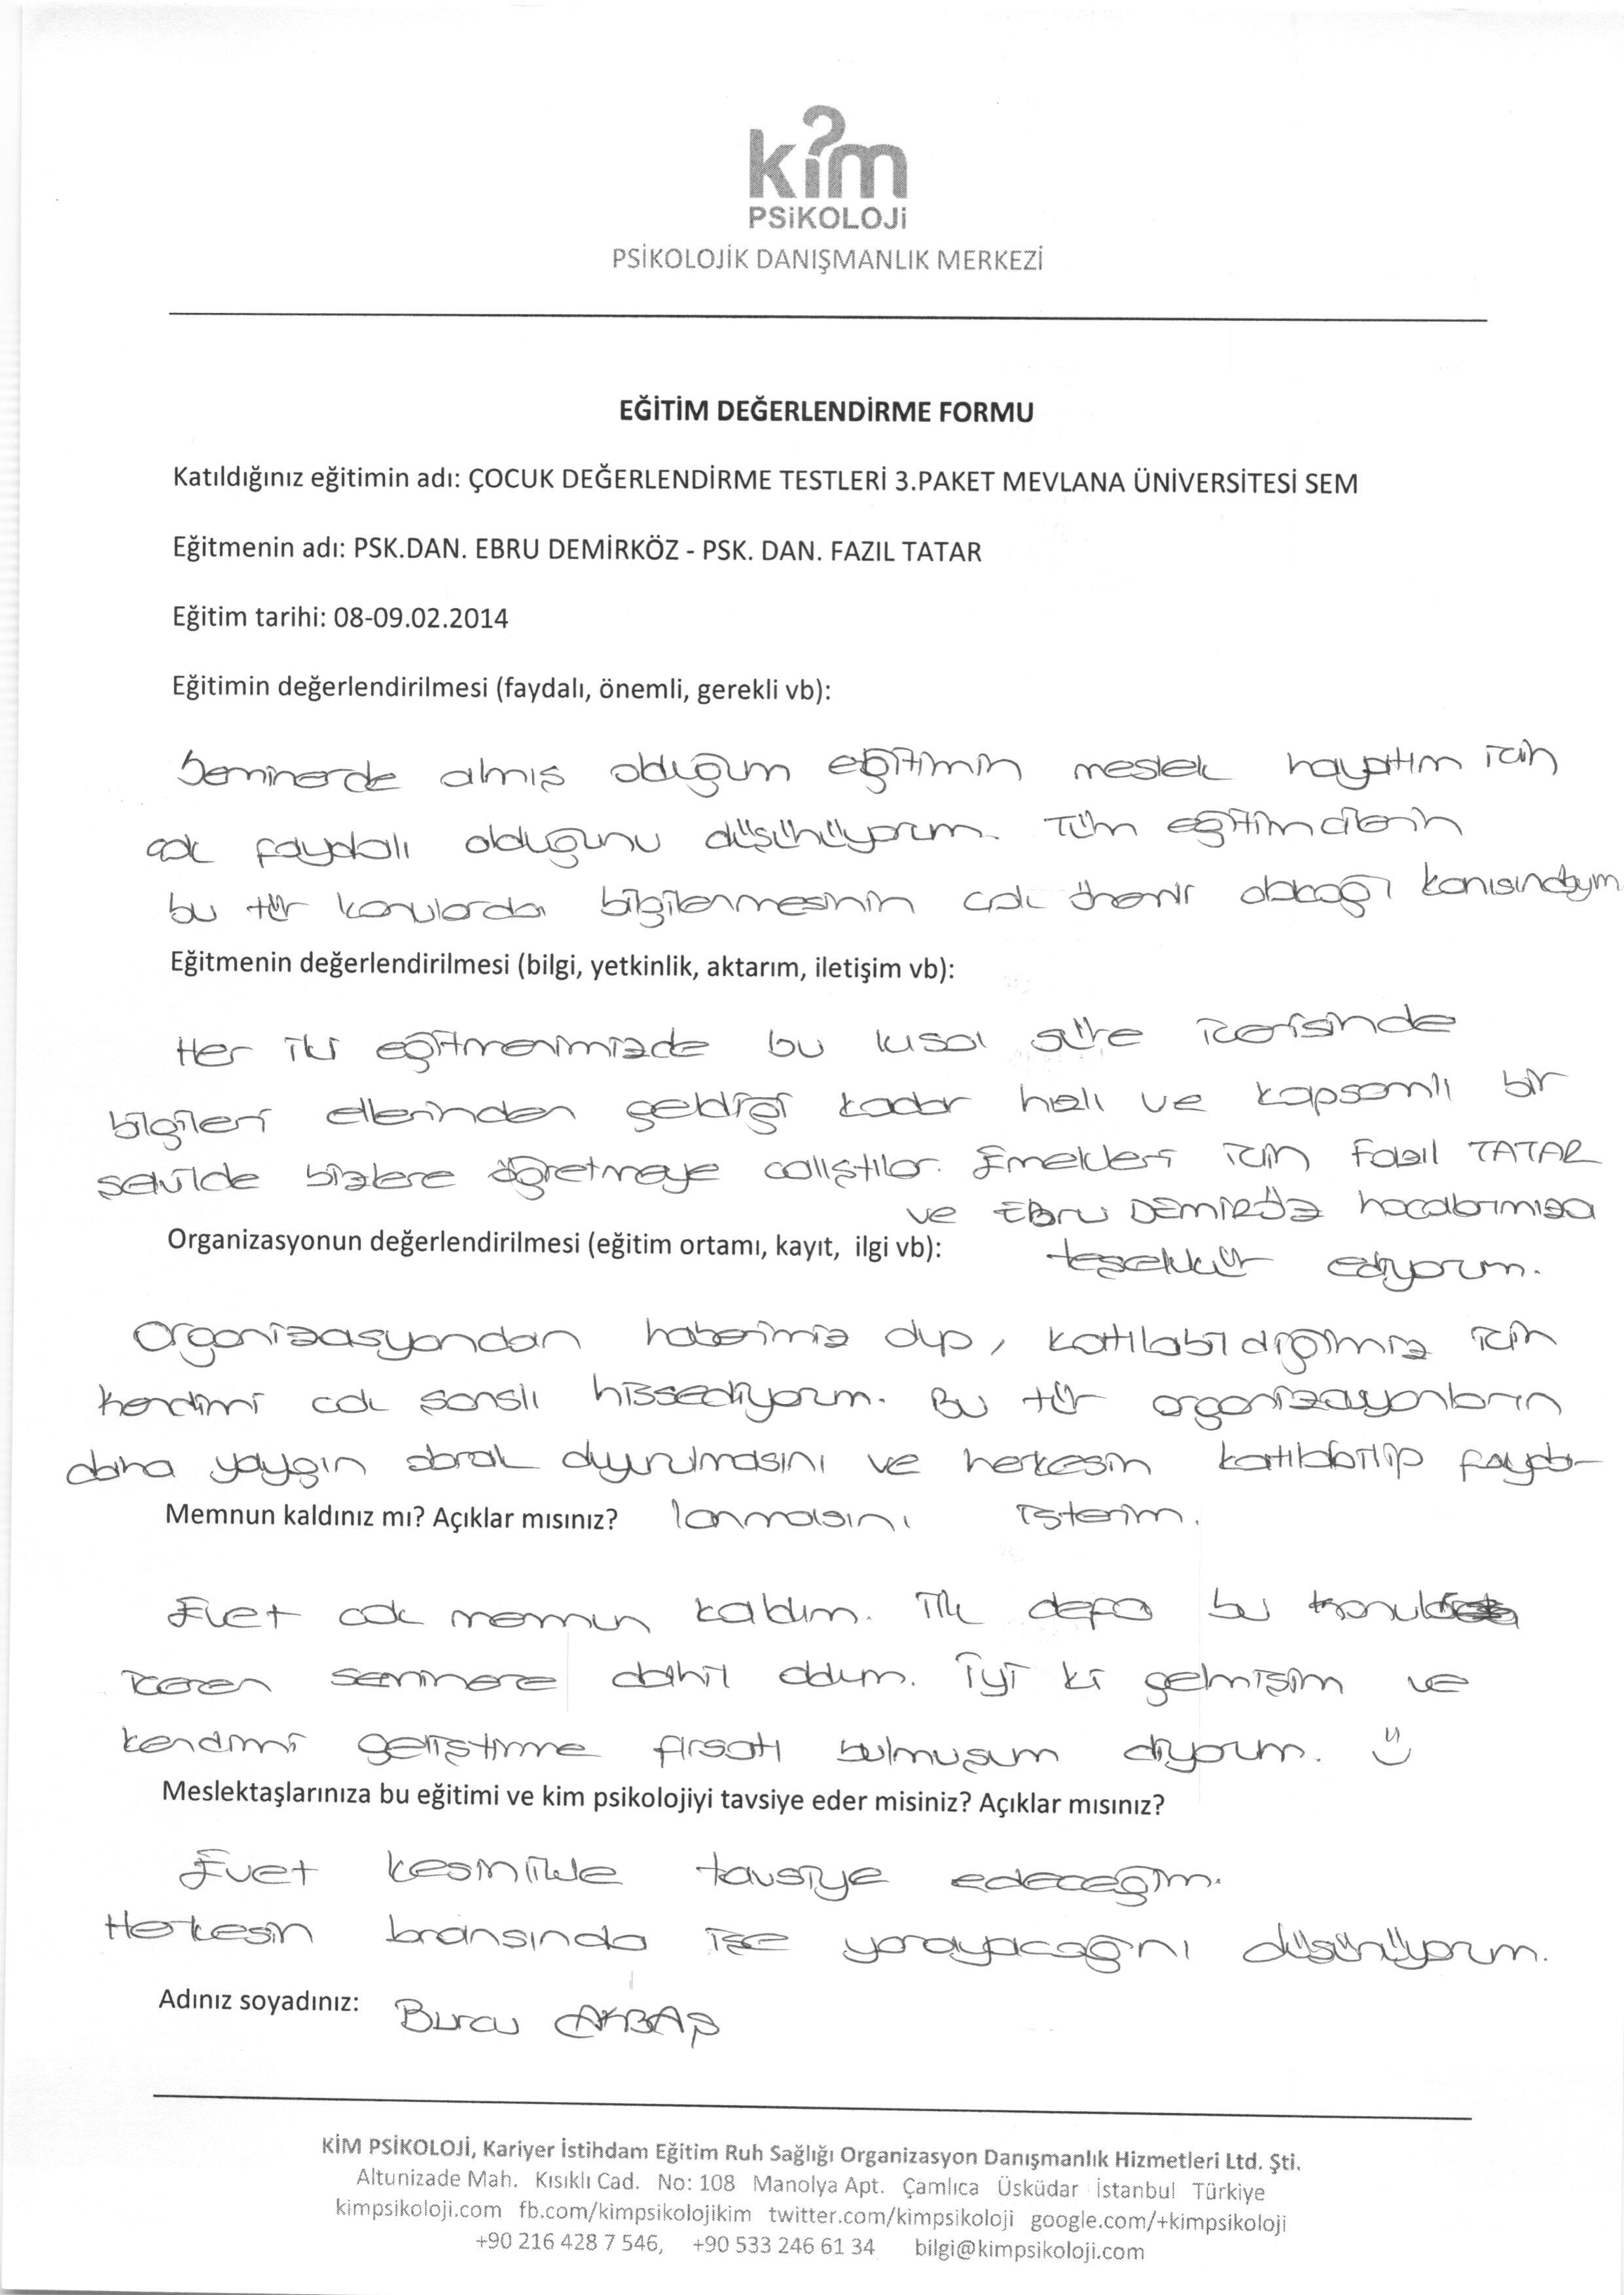 kim
PSiKOLOJi
PSİKOLOJİK DANIŞMANLIK MERKEZİ
EĞİTİM DEĞERLENDİRME FORMU
Katıldığınız eğitimin adı: ÇOCUK DEĞERLENDİRME TESTLERİ 3.PAKET MEVLANA ÜNİVERSİTESİ SEM
Eğitmenin adı: PSK.DAN. EBRU DEMİRKÖZ - PSK. DAN. FAZIL TATAR
Eğitim tarihi: 08-09.02.2014
Eğitimin değerlendirilmesi (faydalı, önemli, gerekli vb):
Seminerde almış olduğum eğitimin meslek hayatım için
çok faydalı olduğunu düşünüyorum. Tüm eğitimcilerin
bu tür konularda bilgilenmesinin çok önemli olacağı kanısındayım
Eğitmenin değerlendirilmesi (bilgi, yetkinlik, aktarım, iletişim vb):
Her iki eğitmenimizde bu kısa süre içerisinde
bilgileri ellerinden geldiği kadar hızlı ve kapsamlı bir
şekilde bizlere öğretmeye çalıştılar. Emekleri için Fazıl TATAR
ve Ebru DEMİRÖZ hocalarımıza
Organizasyonun değerlendirilmesi (eğitim ortamı, kayıt, ilgi vb): teşekkür ediyorum.
Organizasyondan haberimiz olup, katılabildiğimiz için
kendimi çok şanslı hissediyorum. Bu tür organizasyonların
daha yaygın olarak duyurulmasını ve herkesin katılabilip fayda-
Memnun kaldınız mı? Açıklar mısınız? lanmasını isterim.
Evet çok memnun kaldım. İlk defa bu konuları
içeren seminere dahil oldum. İyi ki gelmişim ve
kendimi geliştirme fırsatı bulmuşum diyorum.
Meslektaşlarınıza bu eğitimi ve kim psikolojiyi tavsiye eder misiniz? Açıklar mısınız?
Evet kesinlikle tavsiye edeceğim.
Herkesin branşında işe yarayacağını düşünüyorum.
Adınız soyadınız: Burcu AKBAŞ
KİM PSİKOLOJİ, Kariyer İstihdam Eğitim Ruh Sağlığı Organizasyon Danışmanlık Hizmetleri Ltd. Şti.
Altunizade Mah. Kısıklı Cad. No: 108 Manolya Apt. Çamlıca Üsküdar İstanbul Türkiye
kimpsikoloji.com fb.com/kimpsikolojikim twitter.com/kimpsikoloji google.com/+kimpsikoloji
+90 216 428 7 546, +90 533 246 61 34 bilgi@kimpsikoloji.com